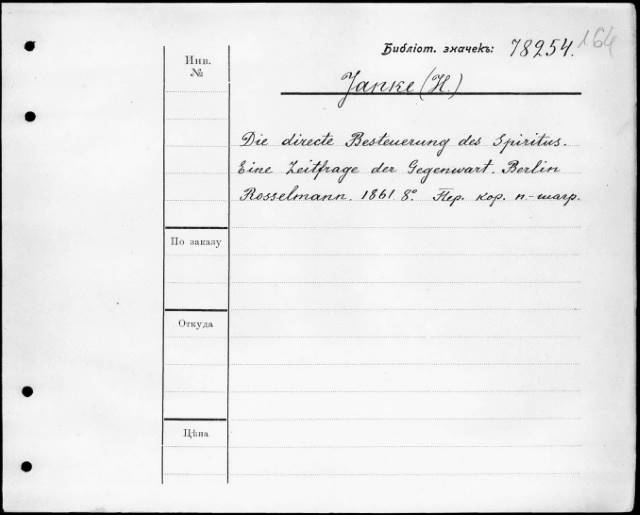 Библіот. значекъ: 78254. 164
Инв. №
Janke (H.)
Die directe Besteuerung des Spiritus.
Eine Zeitfrage der Gegenwart. Berlin
Rosselmann. 1861. 8°. Пер. кор. п.-шагр.
По заказу
Откуда
Цѣна